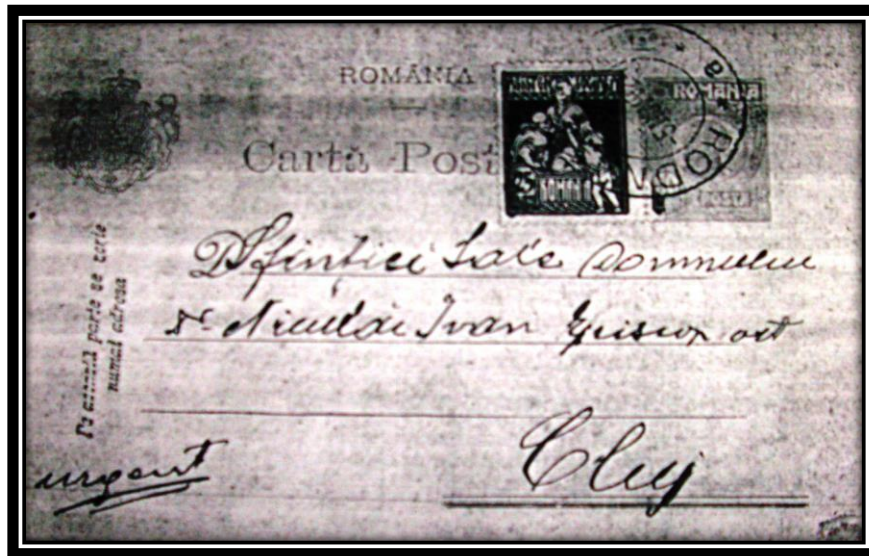 ROMÂNIA
Cartă Post
ROMANIA
ROMANIA
ROD
Pe această parte se scrie
numai adresa
Sfinției Sale Domnului
Dr Nicolae Ivan Episcop ort
Cluj
urgent